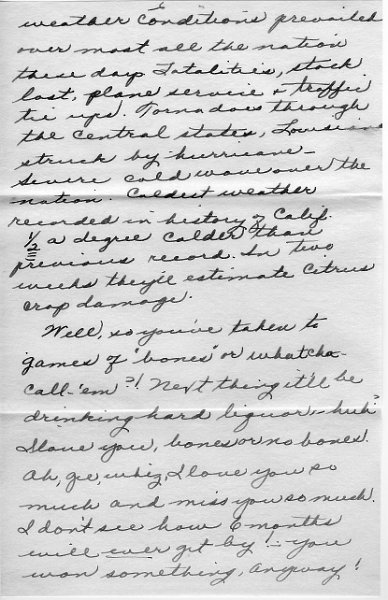 weather conditions prevailed
over most all the nation
these days. Fatalities, stock
lost, plane service & traffic
tie ups. Tornadoes through
the central states, Louisiana
struck by hurricane -
Severe cold wave over the
nation. Coldest weather
recorded in history of Calif.
1/2 a degree colder than
previous record. In two
weeks they'll estimate Citrus
crop damage.
Well, so you've taken to
games of "bones" or whatcha-
call-'em?! Next thing it'll be
drinking hard liquor, - huh?
I love you, bones or no bones.
Ah, gee whiz, I love you so
much and miss you so much.
I don't see how 6 months
will ever get by! - You
won something, anyway!